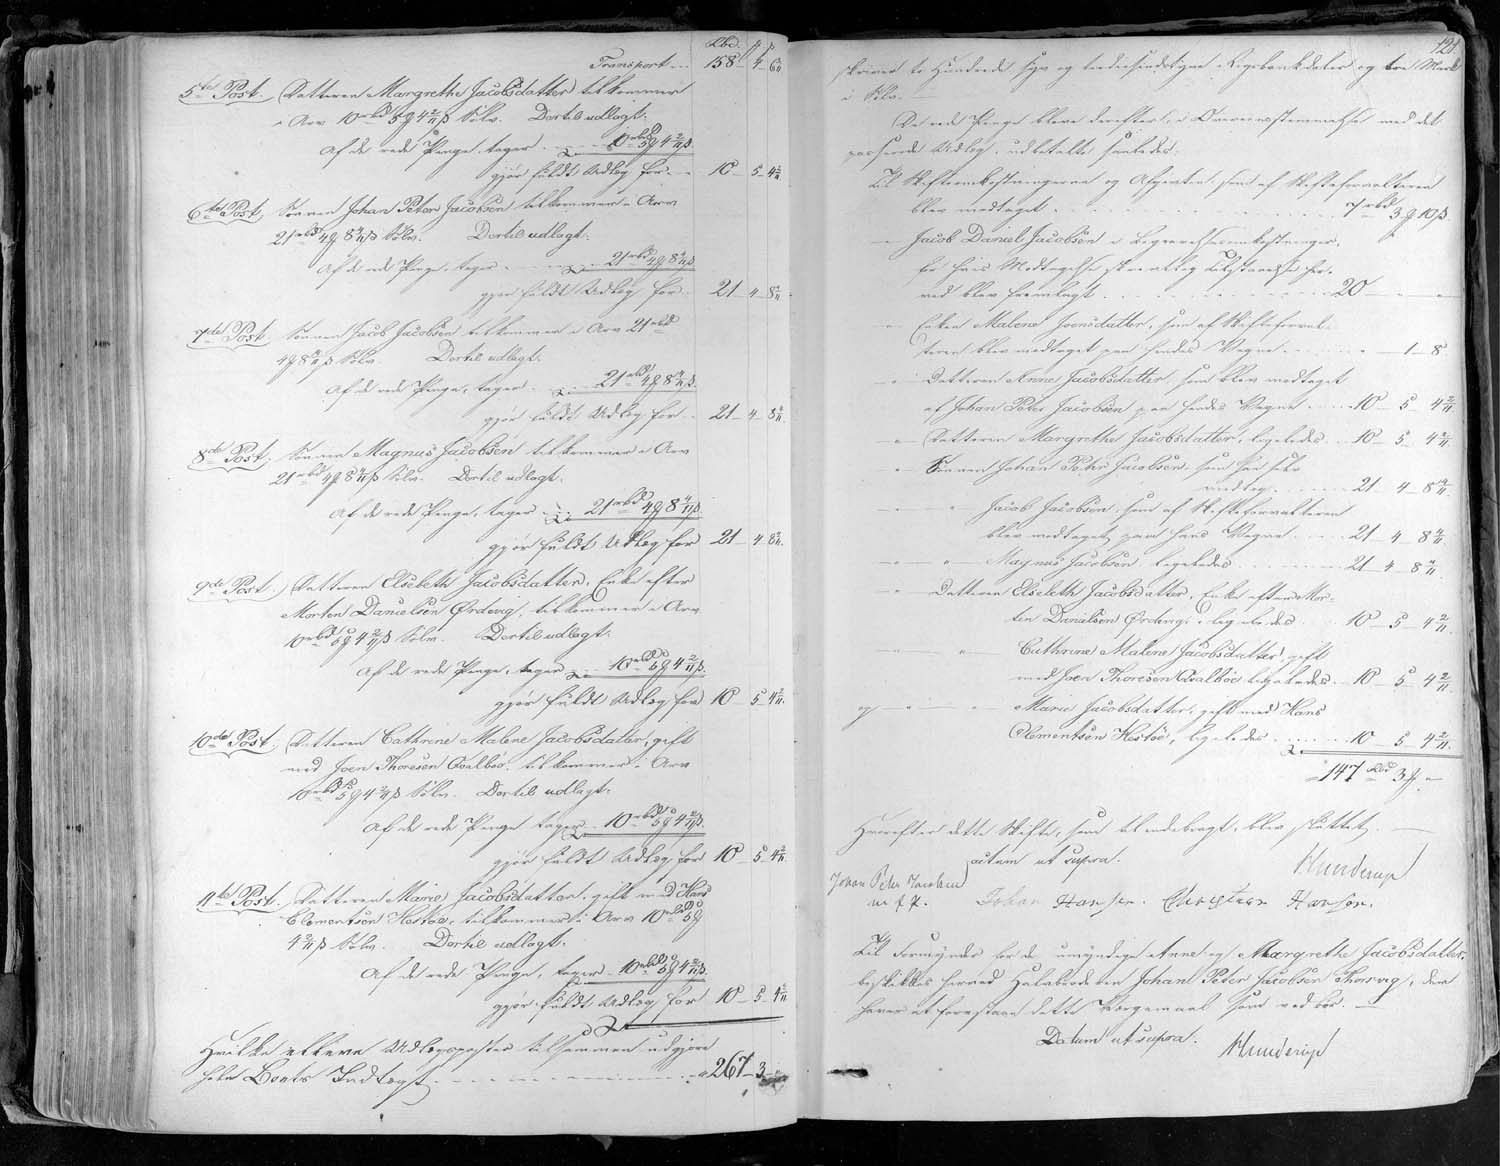 Rbd. ꝑ ß
Transport 158 - 4 - 6 6/11
5te Post. Datteren Margrethe Jacobsdatter tilkommer
i Arv 10 rbd 5 ꝑ 4 2/11 ß Sølv. Dertil udlagt:
Af de rede Penge, tages 10 rbd 5 ꝑ 4 2/11 ß.
gjør fuldt Udlæg for 10 - 5 - 4 2/11
6te Post. Sønnen Johan Peter Jacobsen tilkommer i Arv
21 rbd 4 ꝑ 8 4/11 ß Sølv. Dertil udlagt:
Af de rede Penge, tages 21 rbd 4 ꝑ 8 4/11 ß
gjør fuldt Udlæg for 21 - 4 - 8 4/11
7de Post. Sønnen Jacob Jacobsen tilkommer i Arv 21 rbd
4 ꝑ 8 4/11 ß Sølv. Dertil udlagt:
Af de rede Penge, tages 21 rbd 4 ꝑ 8 4/11 ß.
gjør fuldt Udlæg for 21 - 4 - 8 4/11
8de Post. Sønnen Magnus Jacobsen tilkommer i Arv
21 rbd 4 ꝑ 8 4/11 ß Sølv. Dertil udlagt:
Af de rede Penge, tages 21 rbd 4 ꝑ 8 4/11 ß.
gjør fuldt Udlæg for 21 - 4 - 8 4/11
9de Post. Datteren Elsebeth Jacobsdatter, Enke efter
Morten Danielsen Ørdevig, tilkommer i Arv
10 rbd 5 ꝑ 4 2/11 ß Sølv. Dertil udlagt:
Af de rede Penge, tages 10 rbd 5 ꝑ 4 2/11 ß.
gjør fuldt Udlæg for 10 - 5 - 4 2/11
10de Post. Datteren Cathrine Malene Jacobsdatter, gift
med Joen Thoresen Qvalbøe, tilkommer i Arv
10 rbd 5 ꝑ 4 2/11 ß Sølv. Dertil udlagt:
Af de rede Penge tages 10 rbd 5 ꝑ 4 2/11 ß
gjør fuldt Udlæg for 10 - 5 - 4 2/11
11te Post. Datteren Marie Jacobsdatter, gift med Hans
Clementsen Hestøe, tilkommer i Arv 10 rbd 5 ꝑ
4 2/11 ß Sølv. Dertil udlagt:
Af de rede Penge, tages 10 rbd 5 ꝑ 4 2/11 ß.
gjør fuldt Udlæg for 10 - 5 - 4 2/11
Hvilke elleve Udlægsposter tilsammen udgjøre
hele Boets Indtægt 267 - 3
121.
skriver to Hundrede syv og tredsindstyve Rigsbankdaler og tre Mark
i Sølv.
De rede Penge bleve derefter, i Overeensstemmelse med det
passerede Udlæg, udbetalte saaledes:
Til Skifteomkostningerne og Afgivter, som af Skifteforvalteren
blev modtaget 7 rbd 3 ꝑ 10 ß
" Jacob Daniel Jacobsen i Begravelsesomkostninger,
for hvis Modtagelse skrivtlig Tilstaaelse her-
ved blev fremlagt 20 - " - "
" Enken Malene Joensdatter, som af Skifteforval-
teren blev modtaget paa hendes Vegne " - 1 - 8
" Datteren Anne Jacobsdatter, som blev modtaget
af Johan Peter Jacobsen paa hendes Vegne 10 - 5 - 4 2/11
" Datteren Margrethe Jacobsdatter, ligeledes 10 - 5 - 4 2/11
" Sønnen Johan Peter Jacobsen, som han selv
modtog 21 - 4 - 8 4/11
" " Jacob Jacobsen, som af Skifteforvalteren
blev modtaget paa hans Vegne 21 - 4 - 8 4/11
" " Magnus Jacobsen, ligeledes 21 - 4 - 8 4/11
" Datteren Elsebeth Jacobsdatter, Enke efter Mor-
ten Danielsen Ørdevig, ligeledes 10 - 5 - 4 2/11
" " Cathrine Malene Jacobsdatter, gift
med Joen Thoresen Qvalbøe ligeledes 10 - 5 - 4 2/11
og " " Marie Jacobsdatter, gift med Hans
Clementsen Hestøe, ligeledes 10 - 5 - 4 2/11
147 Rbd 3 ꝑ "
Hvorefter dette Skifte, som tilendebragt, blev sluttet.
actum ut supra.
Hunderup
Johan Peter Jacobsen
m. f. P. Johan Hansen. Christian Hansen.
Til Formynder for de umyndige Anne og Margrethe Jacobsdatter
beskikkes herved Johan Peter Jacobsen Thorsvig, der
haver at forestaae dette Værgemaal som ved bør.
Datum ut supra.
Hunderup